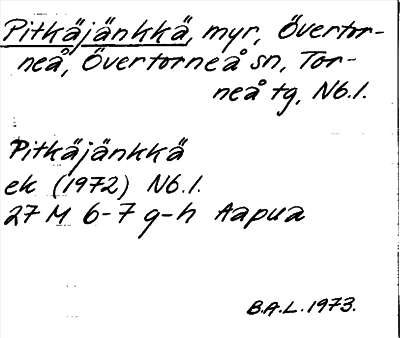 Pitkäjänkkä, myr, Övertor-
neå, Övertorneå sn, Tor-
neå tg, Nb.l.
Pitkäjänkkä
ek (1972) Nb.l.
27 M 6-7 g-h Aapua
B.A.L. 1973.